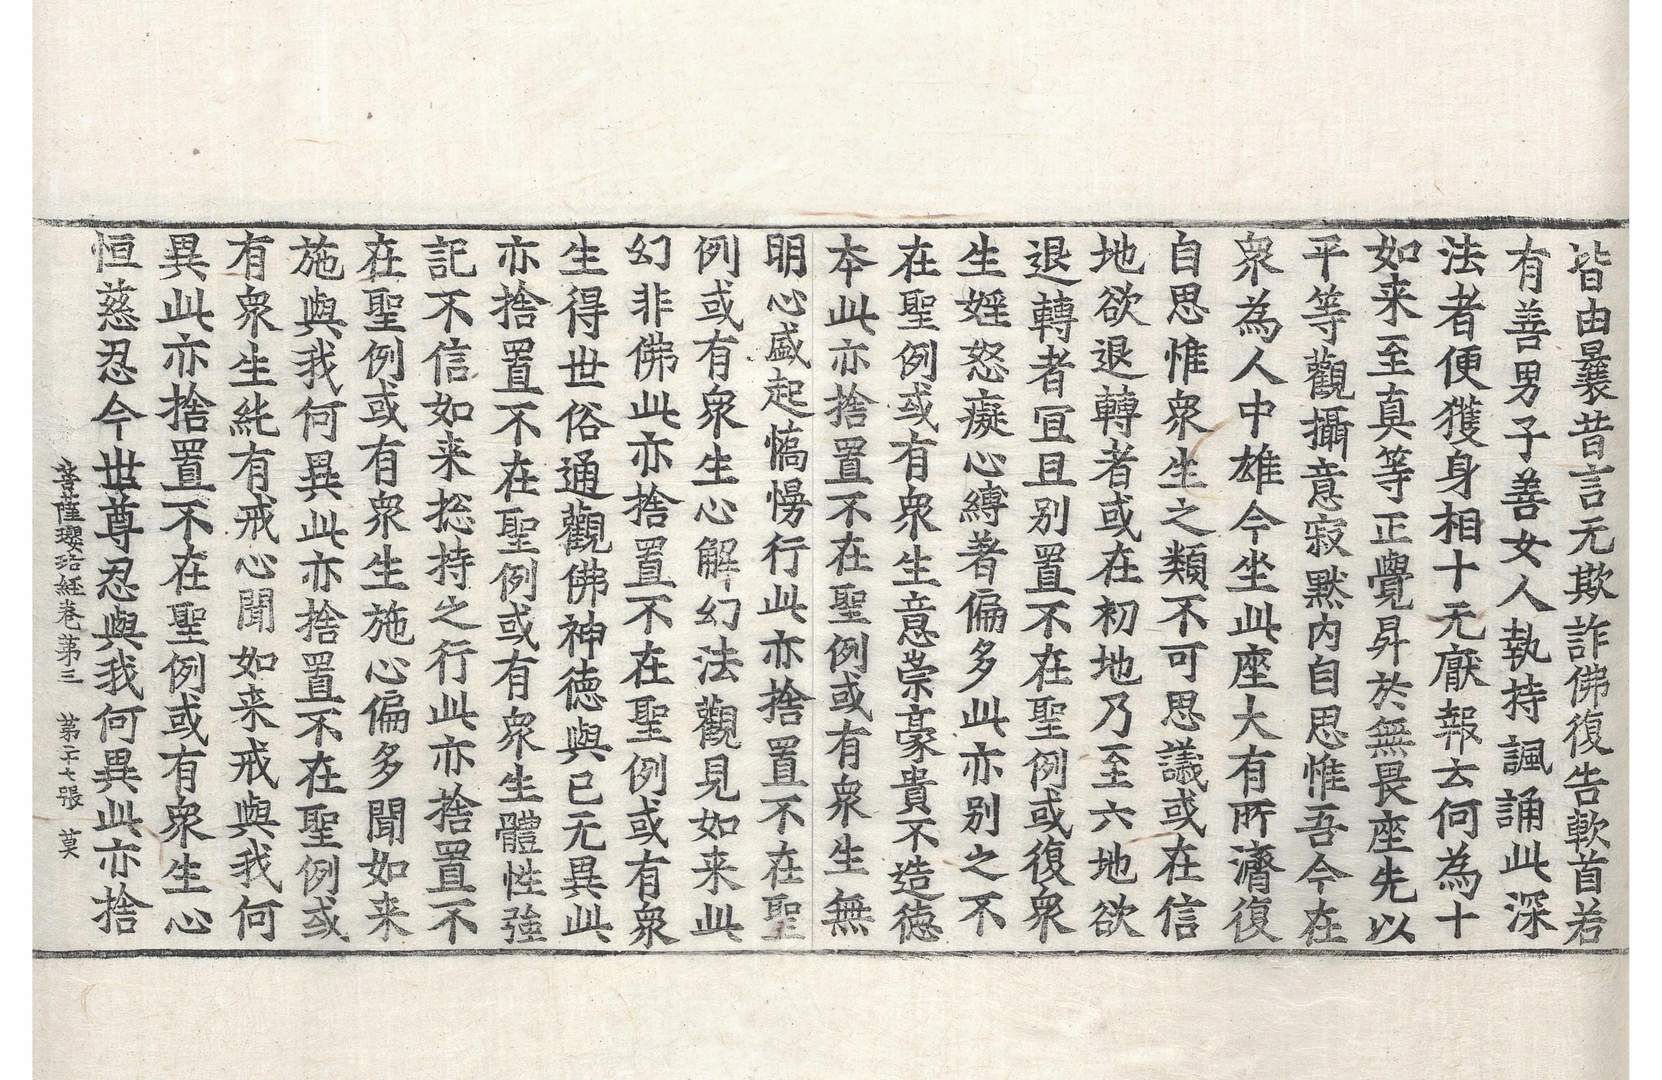 皆由曩昔言无欺詐佛復告軟首若
有善男子善女人執持諷誦此深
法者便獲身相十无猒報云何為十
如来至真等正覺昇於無畏座先以
平等觀攝意寂默内自思惟吾今在
衆為人中雄今坐此座大有所濟復
自思惟衆生之類不可思議或在信
地欲退轉者或在初地乃至六地欲
退轉者冝且别置不在聖例或復衆
生婬怒癡心縛著偏多此亦别之不
在聖例或有衆生意崇豪貴不造德
夲此亦捨置不在聖例或有衆生無
明心盛起憍慢行此亦捨置不在聖
例或有衆生心解幻法觀見如来此
幻非佛此亦捨置不在聖例或有衆
生得世俗通觀佛神德與已无異此
亦捨置不在聖例或有衆生體性強
記不信如来捴持之行此亦捨置不
在聖例或有衆生施心偏多聞如来
施與我何異此亦捨置不在聖例或
有衆生純有戒心聞如来戒與我何
異此亦捨置不在聖例或有衆生心
恒慈忍今世尊忍與我何異此亦捨
菩薩瓔珞經卷第三　第二十七張　莫